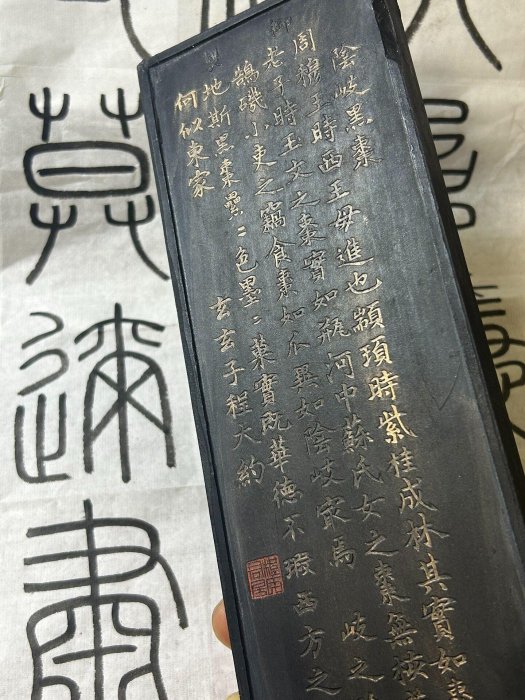 陰岐黑棗
周穆王時西王母進也顓頊時紫桂成林其實如棗
老子時玉女之棗實如瓶河中蘇氏女之棗無核
小吏之竊食棗如瓜異如陰岐家焉 岐之
地斯黑棗纍=色墨=菓實既華德不瑕西方之
何似東家 玄玄子程大約
莫